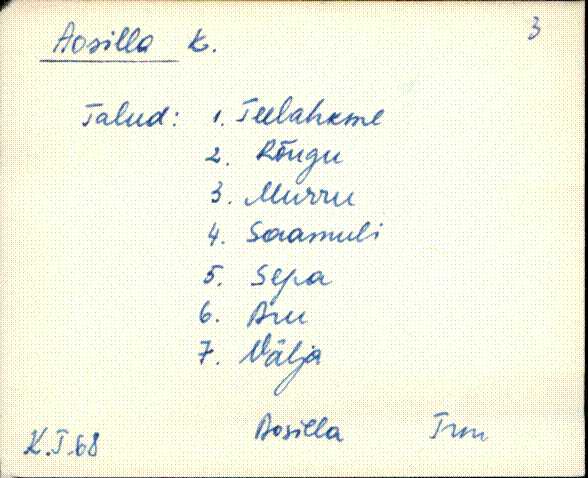 Aosilla k. 3
Talud: 1. Teelahkme
2. Rõngu
3. Murru
4. Saamuli
5. Sepa
6. Aru
7. Välja
Aosilla Trm
K.T.68